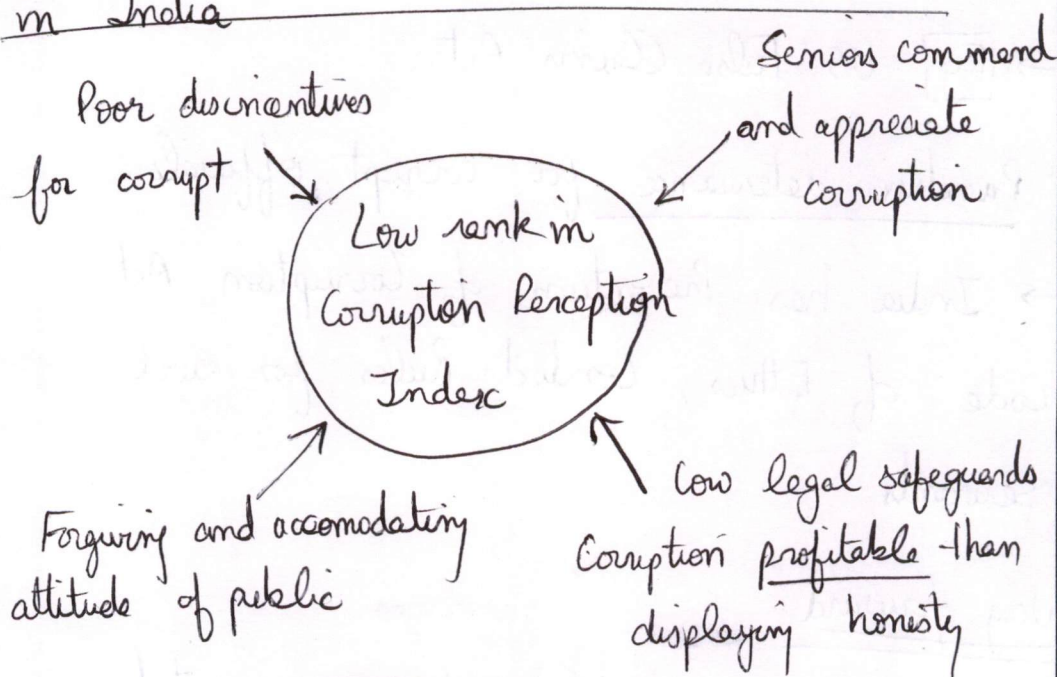 in India
Poor disincentives
for corrupt
Seniors commend
and appreciate
corruption
Low rank in
Corruption Perception
Index
Forgiving and accomodating
attitude of public
Low legal safeguards
Corruption profitable than
displaying honesty